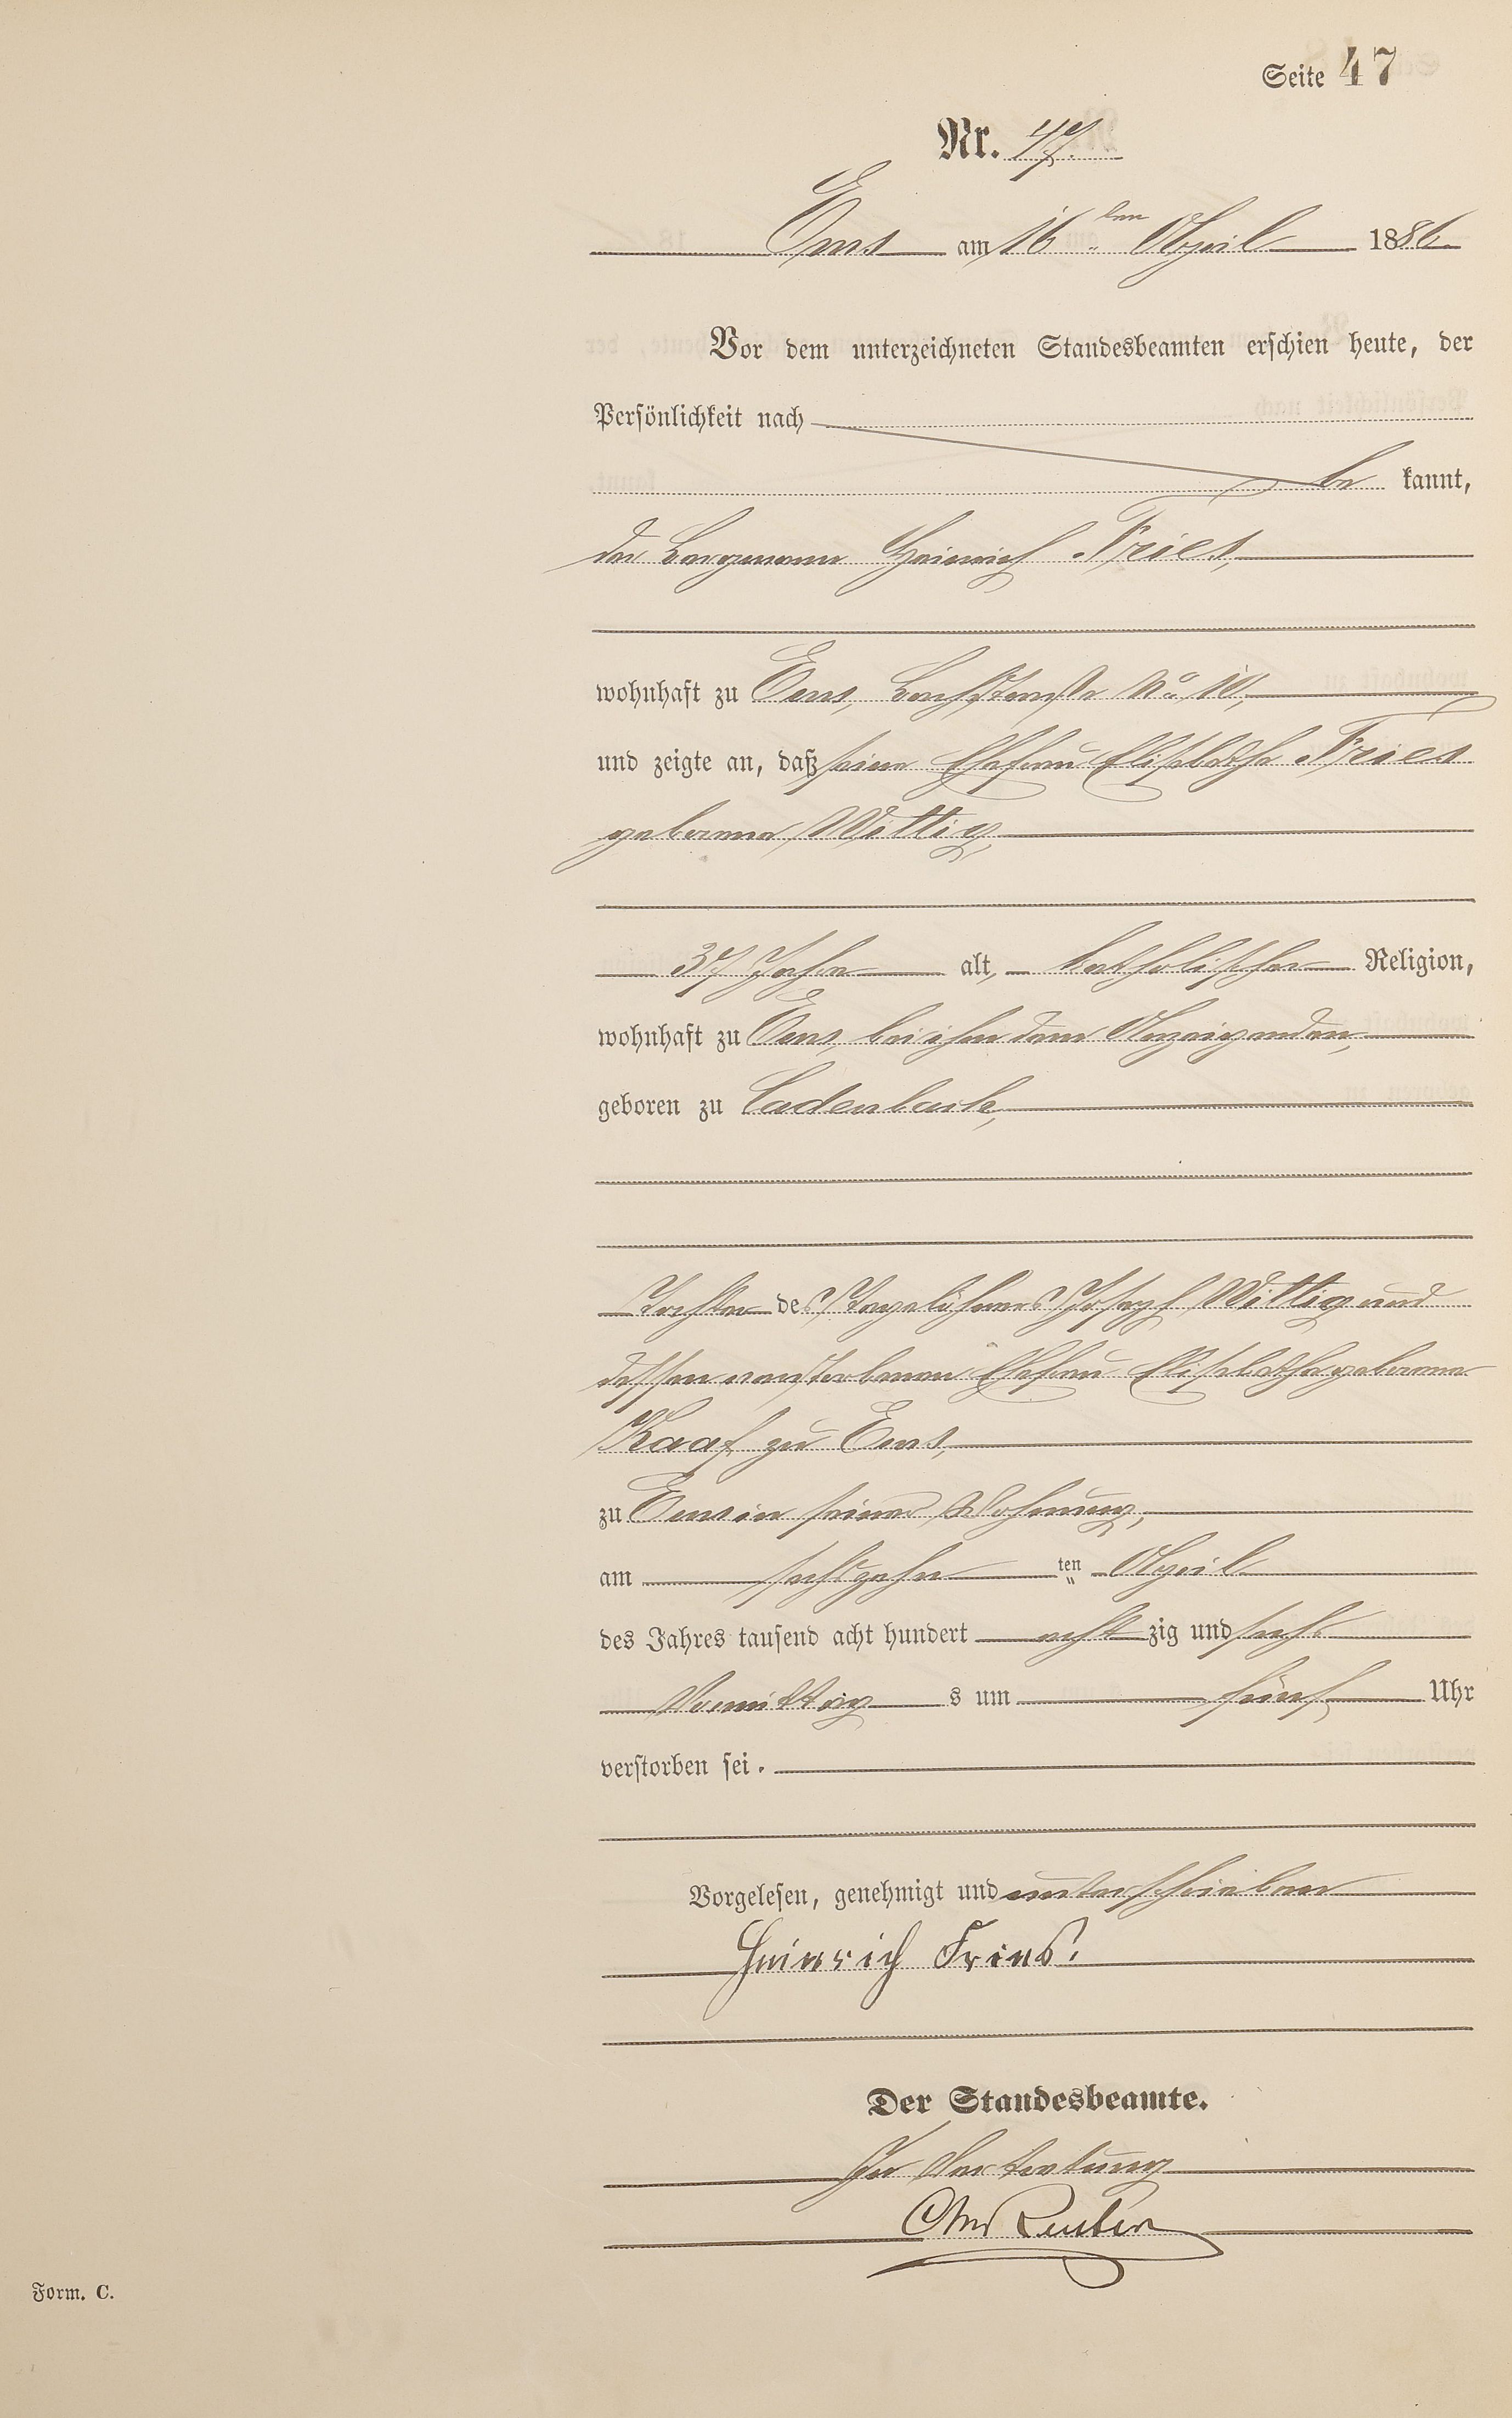 Seite 47
Nr. 47.
Ems am 16ten April 1886
Vor dem unterzeichneten Standesbeamten erschien heute, der
Persönlichkeit nach
be kannt,
der Bergmann Heinrich Fries,
wohnhaft zu Ems, No 10,
und zeigte an, daß seine Ehefrau Elisabetha Fries
geborene Wittig,
37 Jahre alt, katholischer Religion,
wohnhaft zu Ems, bei ihm dem Anzeigenden,
geboren zu Cadenbach,
Tochter des Tagelöhners Joseph Wittig und
dessen verstorbenen Ehefrau Elisabetha geborene
Kaaf zu Ems,
zu Ems in seiner Wohnung,
am sechszehn ten April
des Jahres tausend acht hundert acht zig und sechs
Vormittag s um fünf Uhr
verstorben sei.
Vorgelesen, genehmigt und unterschrieben
Heinrich Fries.
Der Standesbeamte.
In Vertretung
Reuter
Form. C.